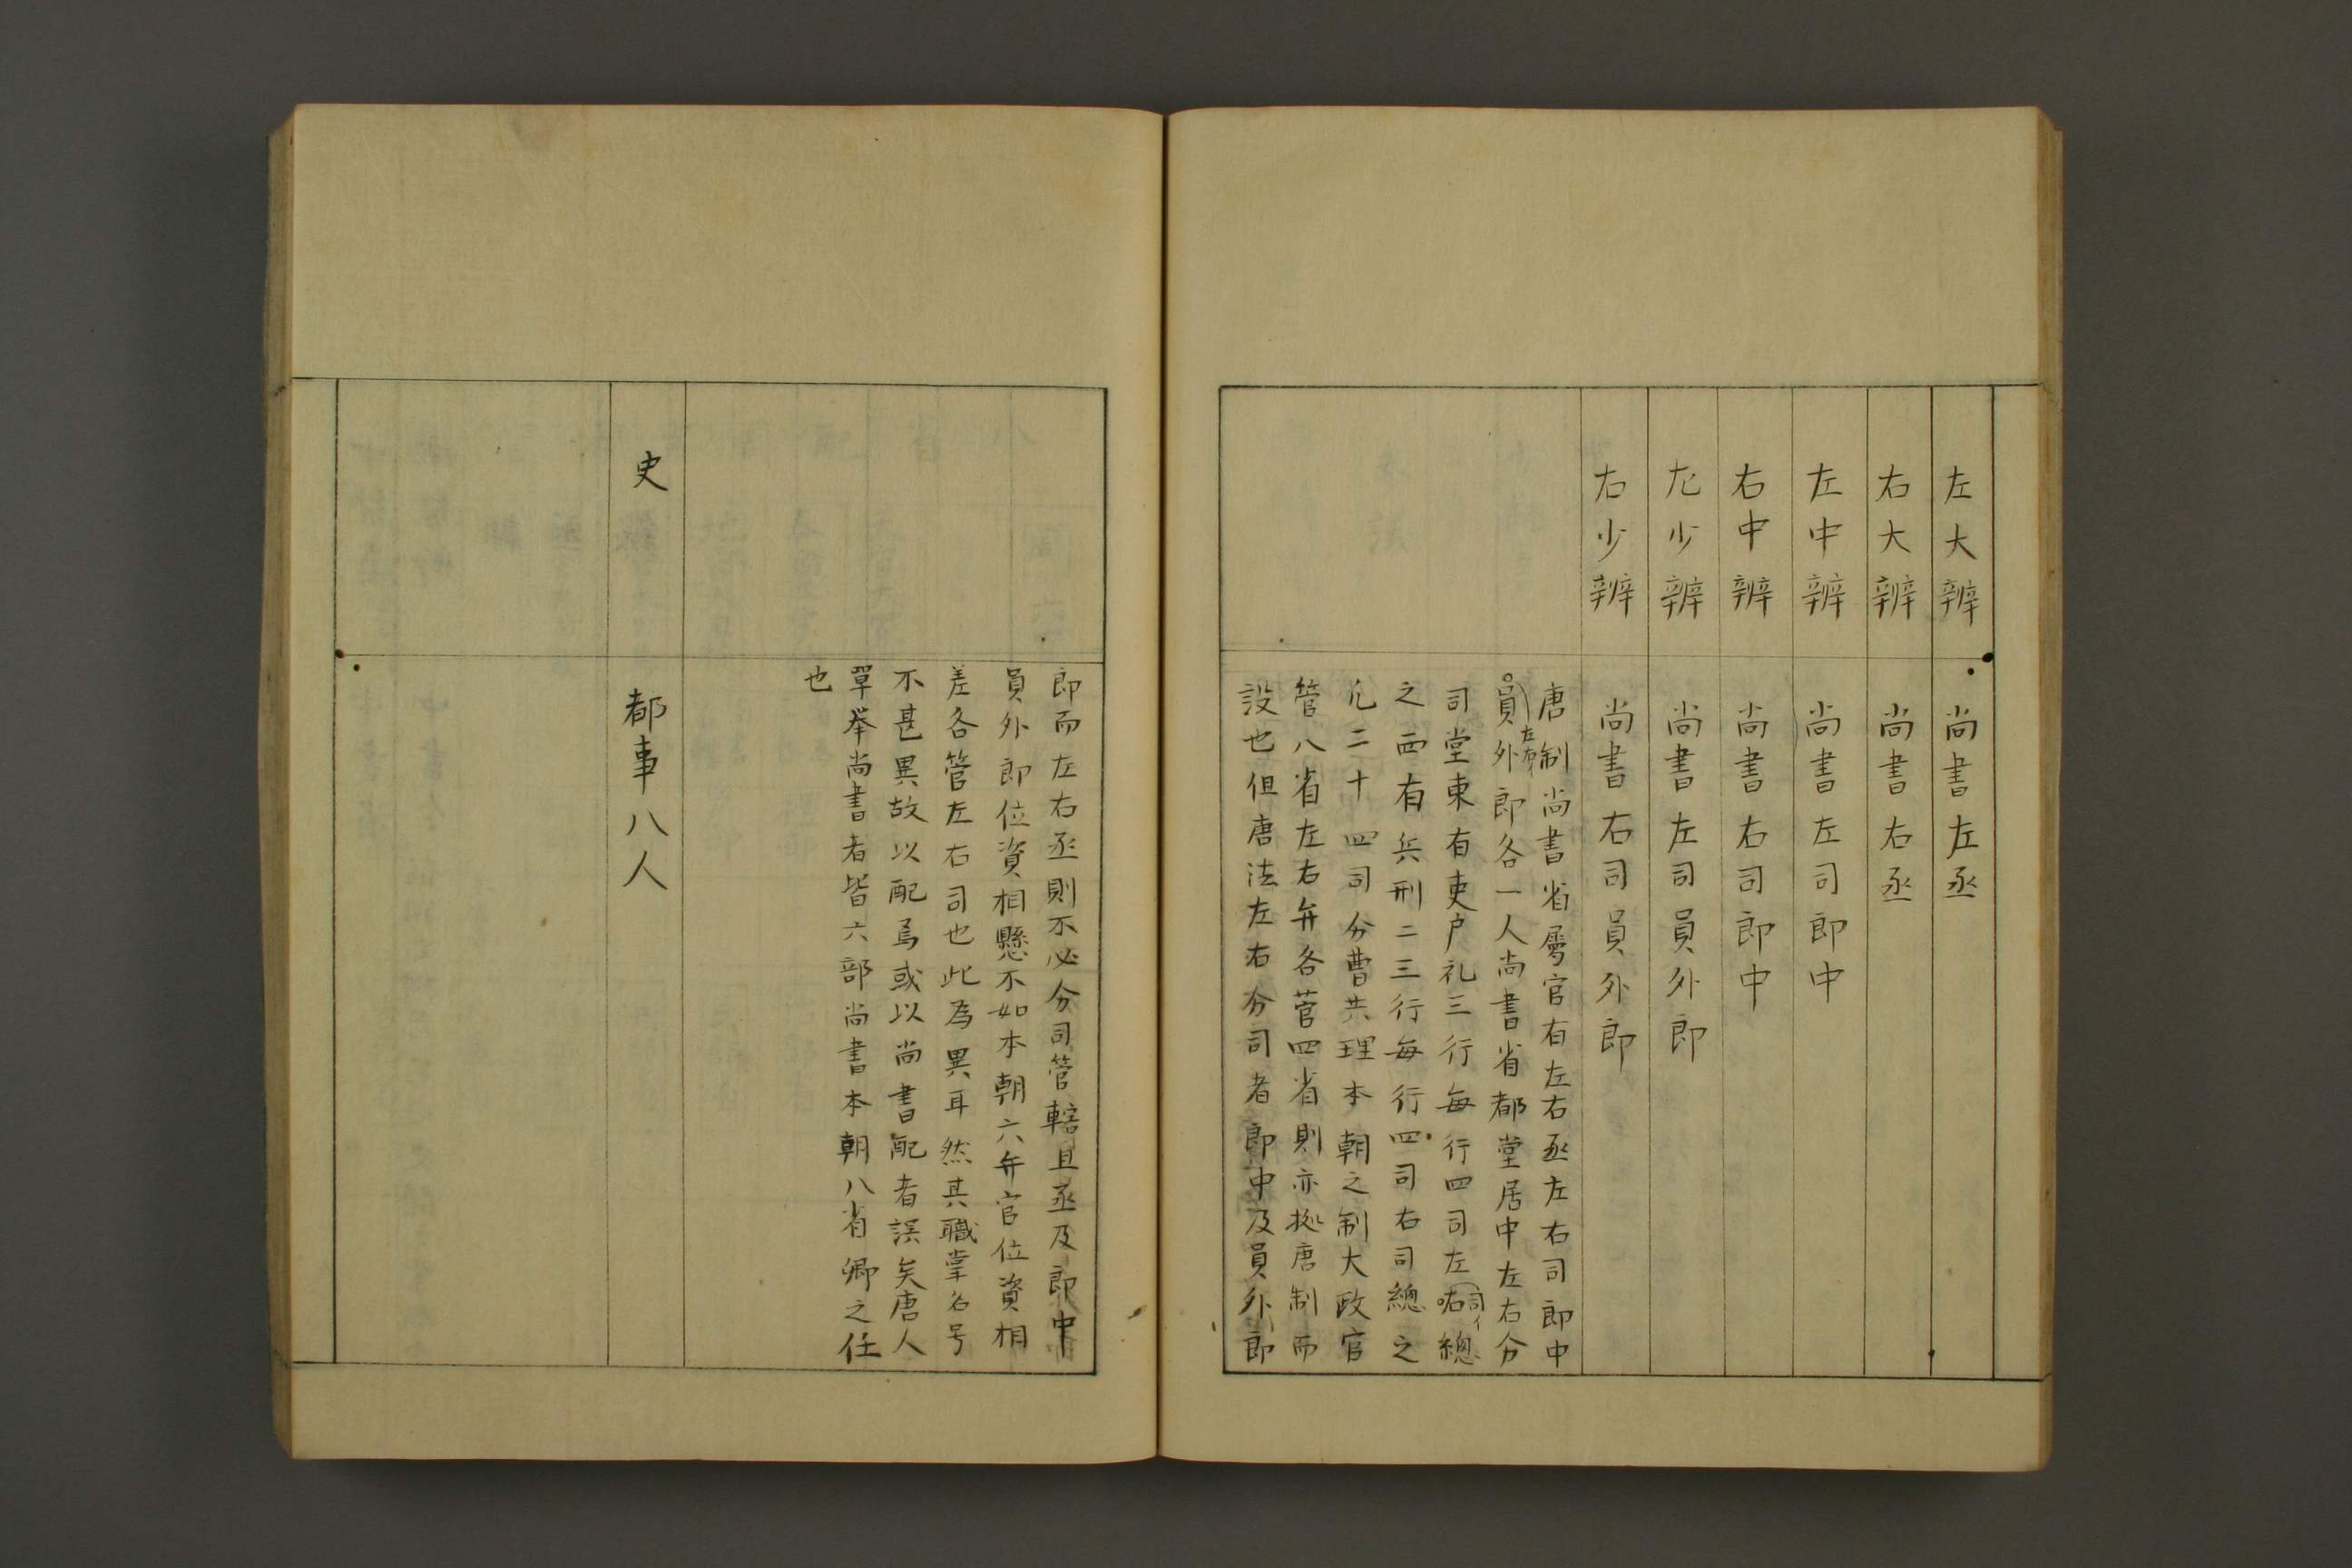 左大辨　尚書左丞
右大辨　尚書右丞
左中辨　尚書左司郎中
右中辨　尚書右司郎中
左少辨　尚書左司員外郎
右少辨　尚書右司員外郎
唐制尚書省属官有左右丞左右司郎中
員外郎各一人尚書省都堂居中左右分
左右
司堂東有吏户礼三行每行四司左司總
司イ
之西有兵刑二三行每行四司右司總之
凡二十四司分曹共理本朝之制大政官
管八省左右弁各菅四省則亦拠唐制而
設也但唐法左右分司者郎中及員外郎
郎而左右丞則不必分司管轄且丞及郎中
員外郎位資相懸不如本朝六弁官位資相
差各管左右司也此為異耳然其職掌名号
不甚異故以配焉或以尚書配者誤矣唐人
單举尚書者皆六部尚書本朝八省卿之任
也
史　都事八人